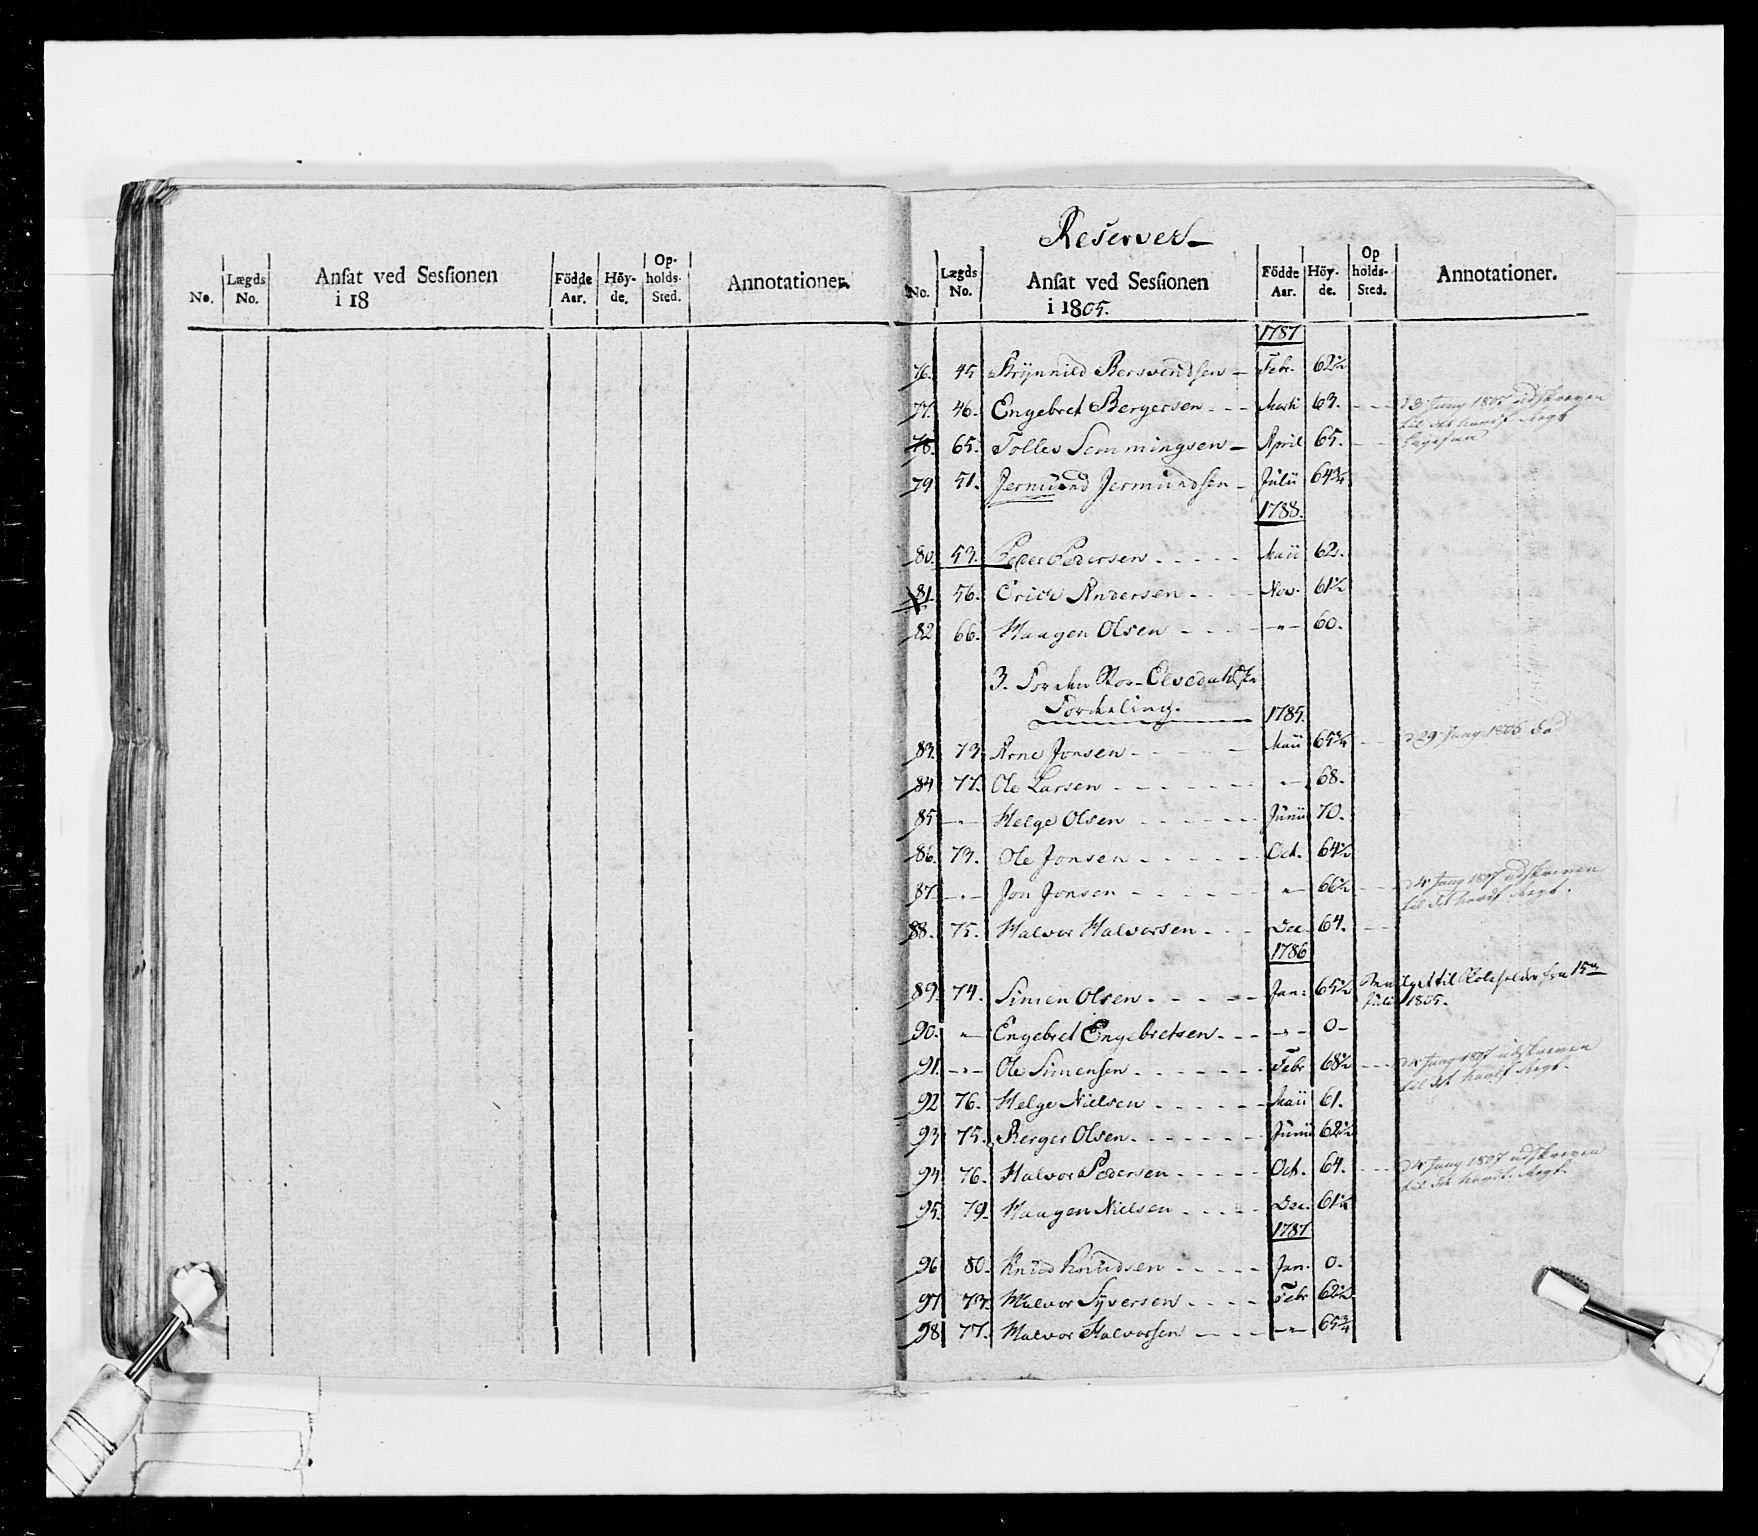 No. Lægds No. Ansat ved Sessionen i 18 Födde Aar. Höy-de. Op-holds-Sted. Annotationer.
Reserver
No. Lægds No. Ansat ved Sessionen i 1805. Födde Aar. Höy-de. Op holds-Sted. Annotationer.
1787
76. 45 Brÿnnild Bersvendsen - Febr. 62½
77. 46. Engebret Bergersen - - - Marti 63. - - d 3 Juny 1807 udskreven
til Regt
78. 65. Tollev Semmingsen - April 65. - -
79 51. Jermund Jermundsen - Julii 64¾
1788.
80. 53. Peder Pedersen - - - - - Maii 62.
81. 56. Erick Andersen - - - - Nov. 61½
82 66. Haagen Olsen - - - - -"- 60.
3. For den Stor-Elvedalske
Fordeling.
1785.
83. 73. Arne Jonsen - - - - - Maii 65¾ - - d 29 Juny 1806 død
84 77. Ole Larsen - - - - - - - "- 68.
85 -"- Helge Olsen - - - - - - Junii 70.
86. 73. Ole Jonsen - - - - - Oct. 64½
87. -"- Jon Jonsen - - - - - - "- 66½ - - d 4 Juny 1807 udskreven
til Regt.
88. 75. Halvor Halvorsen - - - Dec. 64. - -
1786
89. 74. Simen Olsen - - - - - Jan. 65½ fra 15de
Julii 1805.
90. "- Engebret Engebretsen - - - -"- 0-
91. -"- Ole Simensen - - - - - - Febr 68½ - - d 4 Juny 1807 udskreven
til Regt.
92 76. Helge Nielsen - - - - - Maii 61.
93 75. Berger Olsen - - - - - - Junii 62½
94 76. Halvor Pedersen - - - - - Oct. 64. - - d 4 Juny 1807 udskreven
til Regt.
95. 79. Haagen Nielsen - - - - Dec. 61¼
1787
96 80. Knud Knudsen - - - - - Jan. 0.
97 73. Halvor Syversen - - - - Febr 62½
98 77. Halvor Halvorsen - - - - -"- 65¾